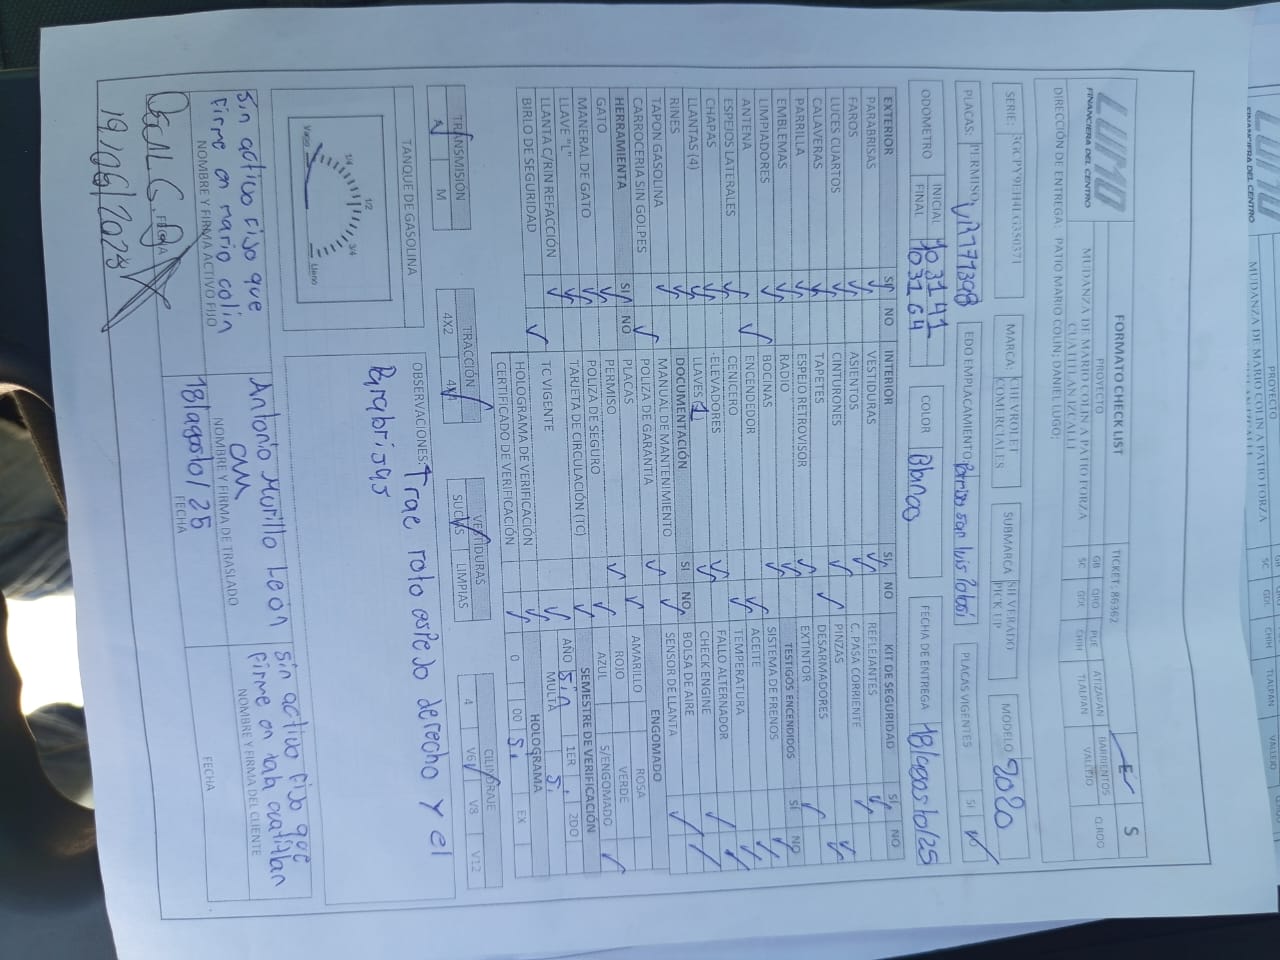 LUMO
FINANCIERA DEL CENTRO
FORMATO CHECK LIST
TICKET: 86362
E
S
PROYECTO
MUDANZA DE MARIO COLIN A PATIO FORZA
CUATITLAN IZCALLI
GB QRO PUE ATIZAPAN BARRIENTOS Q.ROO
SC GDL CHIH TLALPAN VALLEJO
DIRECCIÓN DE ENTREGA: PATIO MARIO COLIN; DANIEL LUGO;
SERIE:
MARCA: CHEVROLET COMERCIALES
SUBMARCA SILVERADO PICK UP
MODELO 2020
PLACAS: PERMISO
EDO EMPLACAMIENTO: Permiso san luis Potosi
PLACAS VIGENTES SI
ODOMETRO INICIAL 103141
FINAL 103164
COLOR Blanco
FECHA DE ENTREGA 18/agosto/25
EXTERIOR SI NO
PARABRISAS
FAROS
LUCES CUARTOS
CALAVERAS
PARRILLA
EMBLEMAS
LIMPIADORES
ANTENA
ESPEJOS LATERALES
CHAPAS
LLANTAS (4)
RINES
TAPON GASOLINA
CARROCERIA SIN GOLPES
HERRAMIENTA SI NO
GATO
MANERAL DE GATO
LLAVE "L"
LLANTA C/RIN REFACCIÓN
BIRLO DE SEGURIDAD
INTERIOR SI NO
VESTIDURAS
ASIENTOS
CINTURONES
TAPETES
ESPEJO RETROVISOR
RADIO
BOCINAS
ENCENDEDOR
CENICERO
ELEVADORES
LLAVES 1
DOCUMENTACIÓN SI NO
MANUAL DE MANTENIMIENTO
POLIZA DE GARANTIA
PLACAS
PERMISO
POLIZA DE SEGURO
TARJETA DE CIRCULACIÓN (TC)
TC VIGENTE
HOLOGRAMA DE VERIFICACIÓN
CERTIFICADO DE VERIFICACIÓN
KIT DE SEGURIDAD SI NO
REFLEJANTES
C. PASA CORRIENTE
PINZAS
DESARMADORES
EXTINTOR
TESTIGOS ENCENDIDOS SI NO
SISTEMA DE FRENOS
ACEITE
TEMPERATURA
FALLO ALTERNADOR
CHECK ENGINE
BOLSA DE AIRE
SENSOR DE LLANTA
ENGOMADO
AMARILLO ROSA
ROJO VERDE
AZUL S/ENGOMADO
SEMESTRE DE VERIFICACIÓN
AÑO 1ER 2DO
MULTA
HOLOGRAMA
0 00 EX
TRANSMISIÓN
A M
TRACCIÓN
4X2 4X4
VESTIDURAS
SUCIAS LIMPIAS
CILINDRAJE
4 V6 V8 V12
TANQUE DE GASOLINA
Vacio 1/4 1/2 3/4 Lleno
OBSERVACIONES: Trae roto espejo derecho y el
Parabrisas
Sin activo fijo que
firme en mario colin
NOMBRE Y FIRMA ACTIVO FIJO
FECHA
Antonio Murillo Leon
NOMBRE Y FIRMA DE TRASLADO
18/agosto/25
FECHA
Sin activo fijo que
firme en
NOMBRE Y FIRMA DEL CLIENTE
FECHA
PROYECTO
FINANCIERA DEL CENTRO
SC GDL CHIH TLALPAN VALLEJO